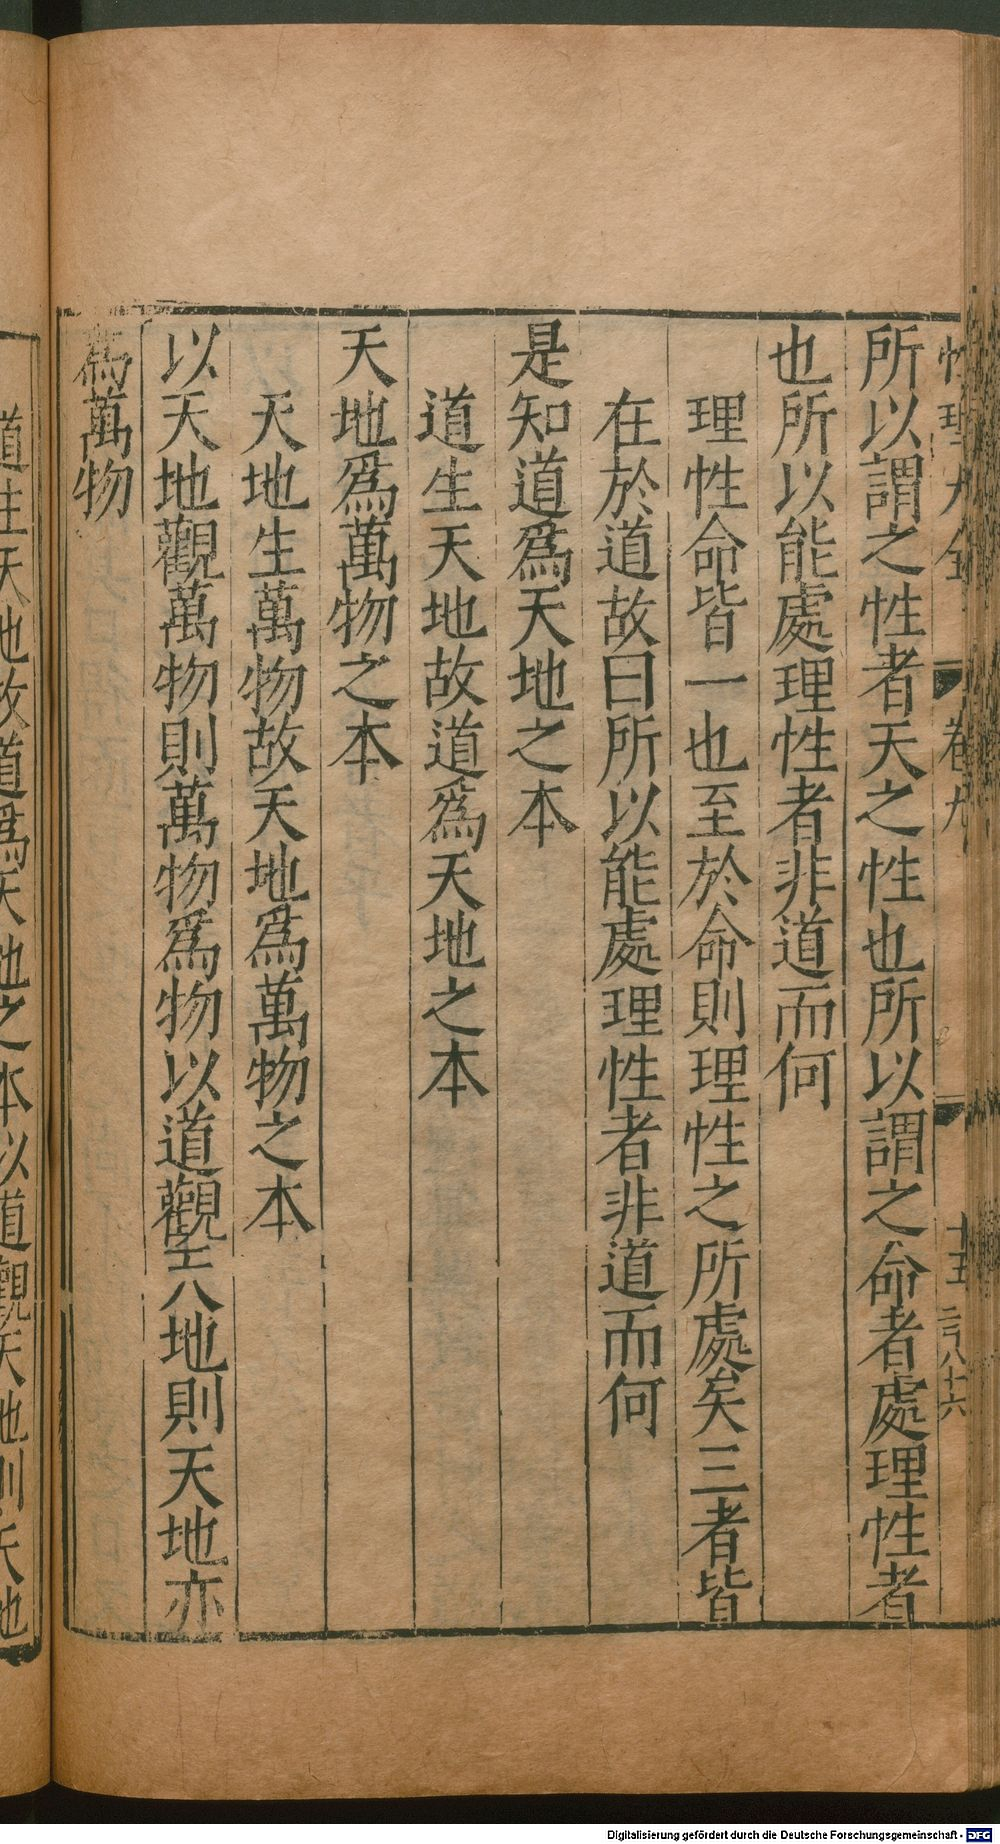 性理大全 卷九 十五 二百八十六
所以謂之性者天之性也所以謂之命者處理性者
也所以能處理性者非道而何
理性命皆一也至於命則理性之所處矣三者皆
在於道故曰所以能處理性者非道而何
是知道爲天地之本
道生天地故道爲天地之本
天地爲萬物之本
天地生萬物故天地爲萬物之本
以天地觀萬物則萬物爲物以道觀天地則天地亦
爲萬物
道生天地故道爲天地之本以道觀天地則天地
Digitalisierung gefördert durch die Deutsche Forschungsgemeinschaft - DFG